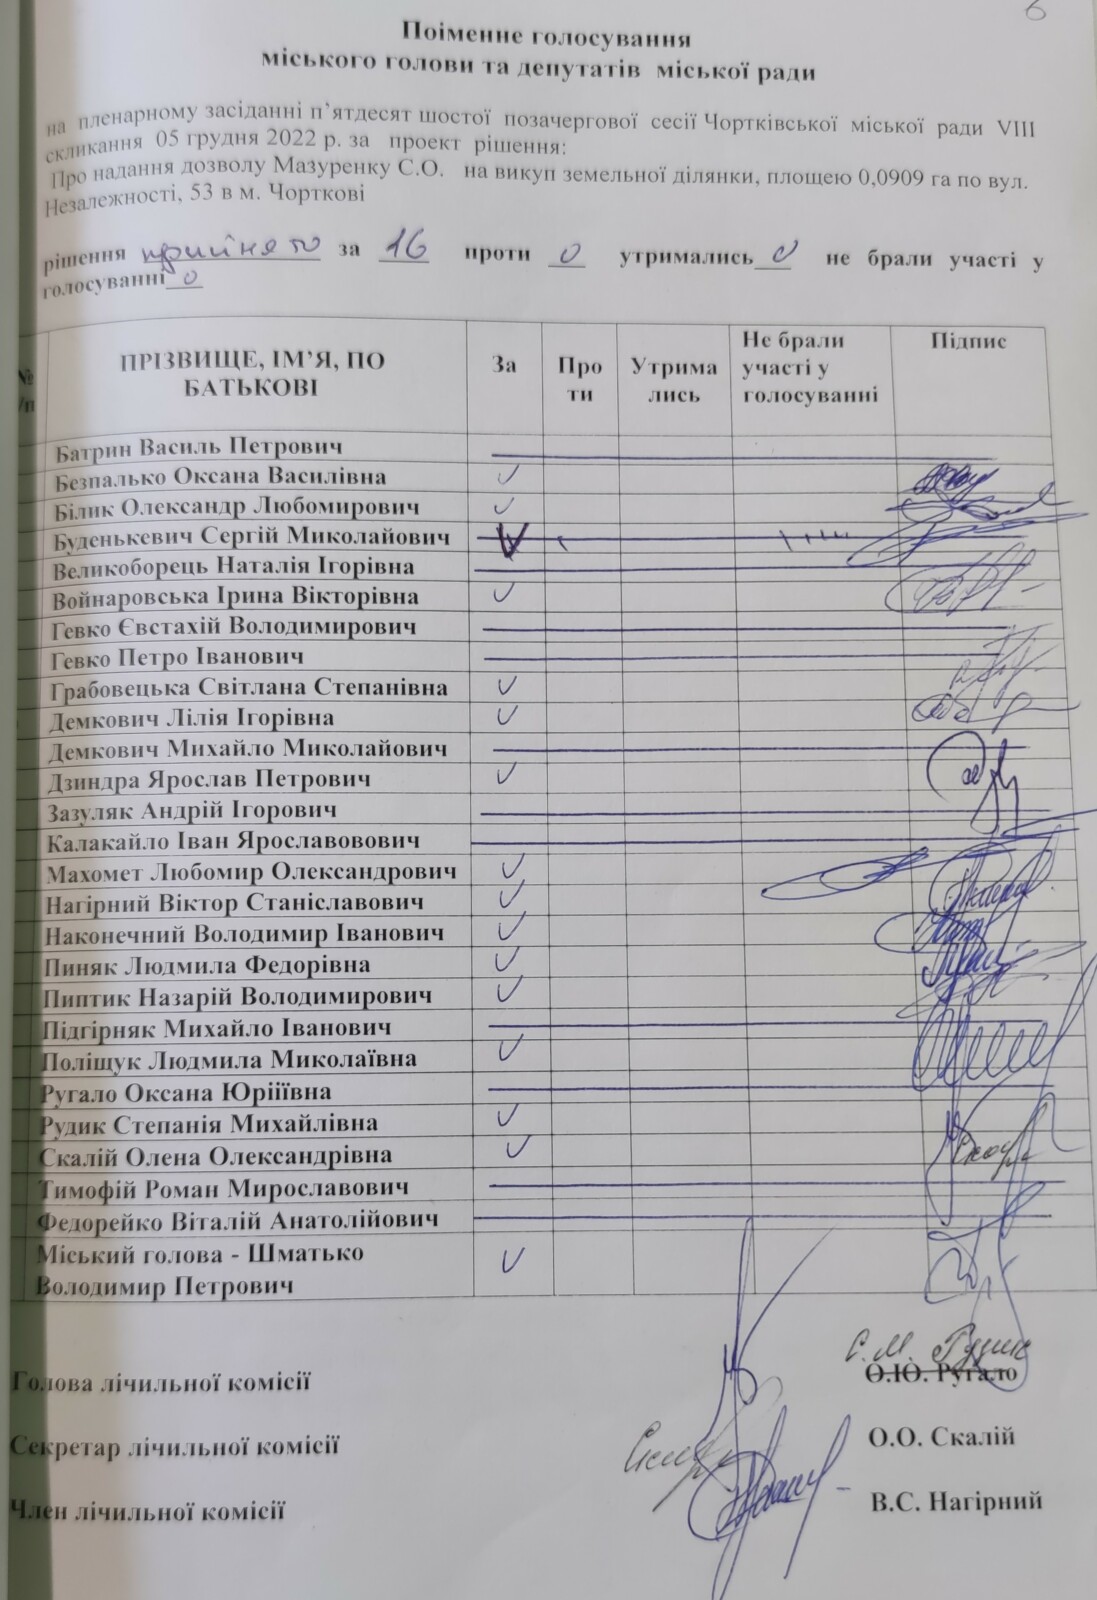 6
Поіменне голосування
міського голови та депутатів міської ради
на пленарному засіданні п’ятдесят шостої позачергової сесії Чортківської міської ради VIII
скликання 05 грудня 2022 р. за проект рішення:
Про надання дозволу Мазуренку С.О. на викуп земельної ділянки, площею 0,0909 га по вул.
Незалежності, 53 в м. Чорткові
рішення прийнято за 16 проти 0 утримались 0 не брали участі у
голосуванні 0
№ /п ПРІЗВИЩЕ, ІМ’Я, ПО БАТЬКОВІ За Про ти Утрима лись Не брали участі у голосуванні Підпис
Батрин Василь Петрович
Безпалько Оксана Василівна
Білик Олександр Любомирович
Буденькевич Сергій Миколайович
Великоборець Наталія Ігорівна
Войнаровська Ірина Вікторівна
Гевко Євстахій Володимирович
Гевко Петро Іванович
Грабовецька Світлана Степанівна
Демкович Лілія Ігорівна
Демкович Михайло Миколайович
Дзиндра Ярослав Петрович
Зазуляк Андрій Ігорович
Калакайло Іван Ярославовович
Махомет Любомир Олександрович
Нагірний Віктор Станіславович
Наконечний Володимир Іванович
Пиняк Людмила Федорівна
Пиптик Назарій Володимирович
Підгірняк Михайло Іванович
Поліщук Людмила Миколаївна
Ругало Оксана Юріїівна
Рудик Степанія Михайлівна
Скалій Олена Олександрівна
Тимофій Роман Мирославович
Федорейко Віталій Анатолійович
Міський голова - Шматько
Володимир Петрович
С.М. Рудик
Голова лічильної комісії О.Ю. Ругало
Секретар лічильної комісії О.О. Скалій
Член лічильної комісії В.С. Нагірний